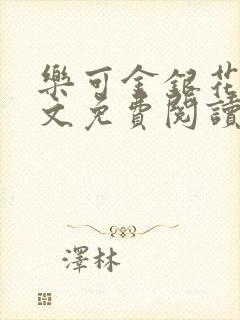 樂可金銀花
文免費閱讀
澤林